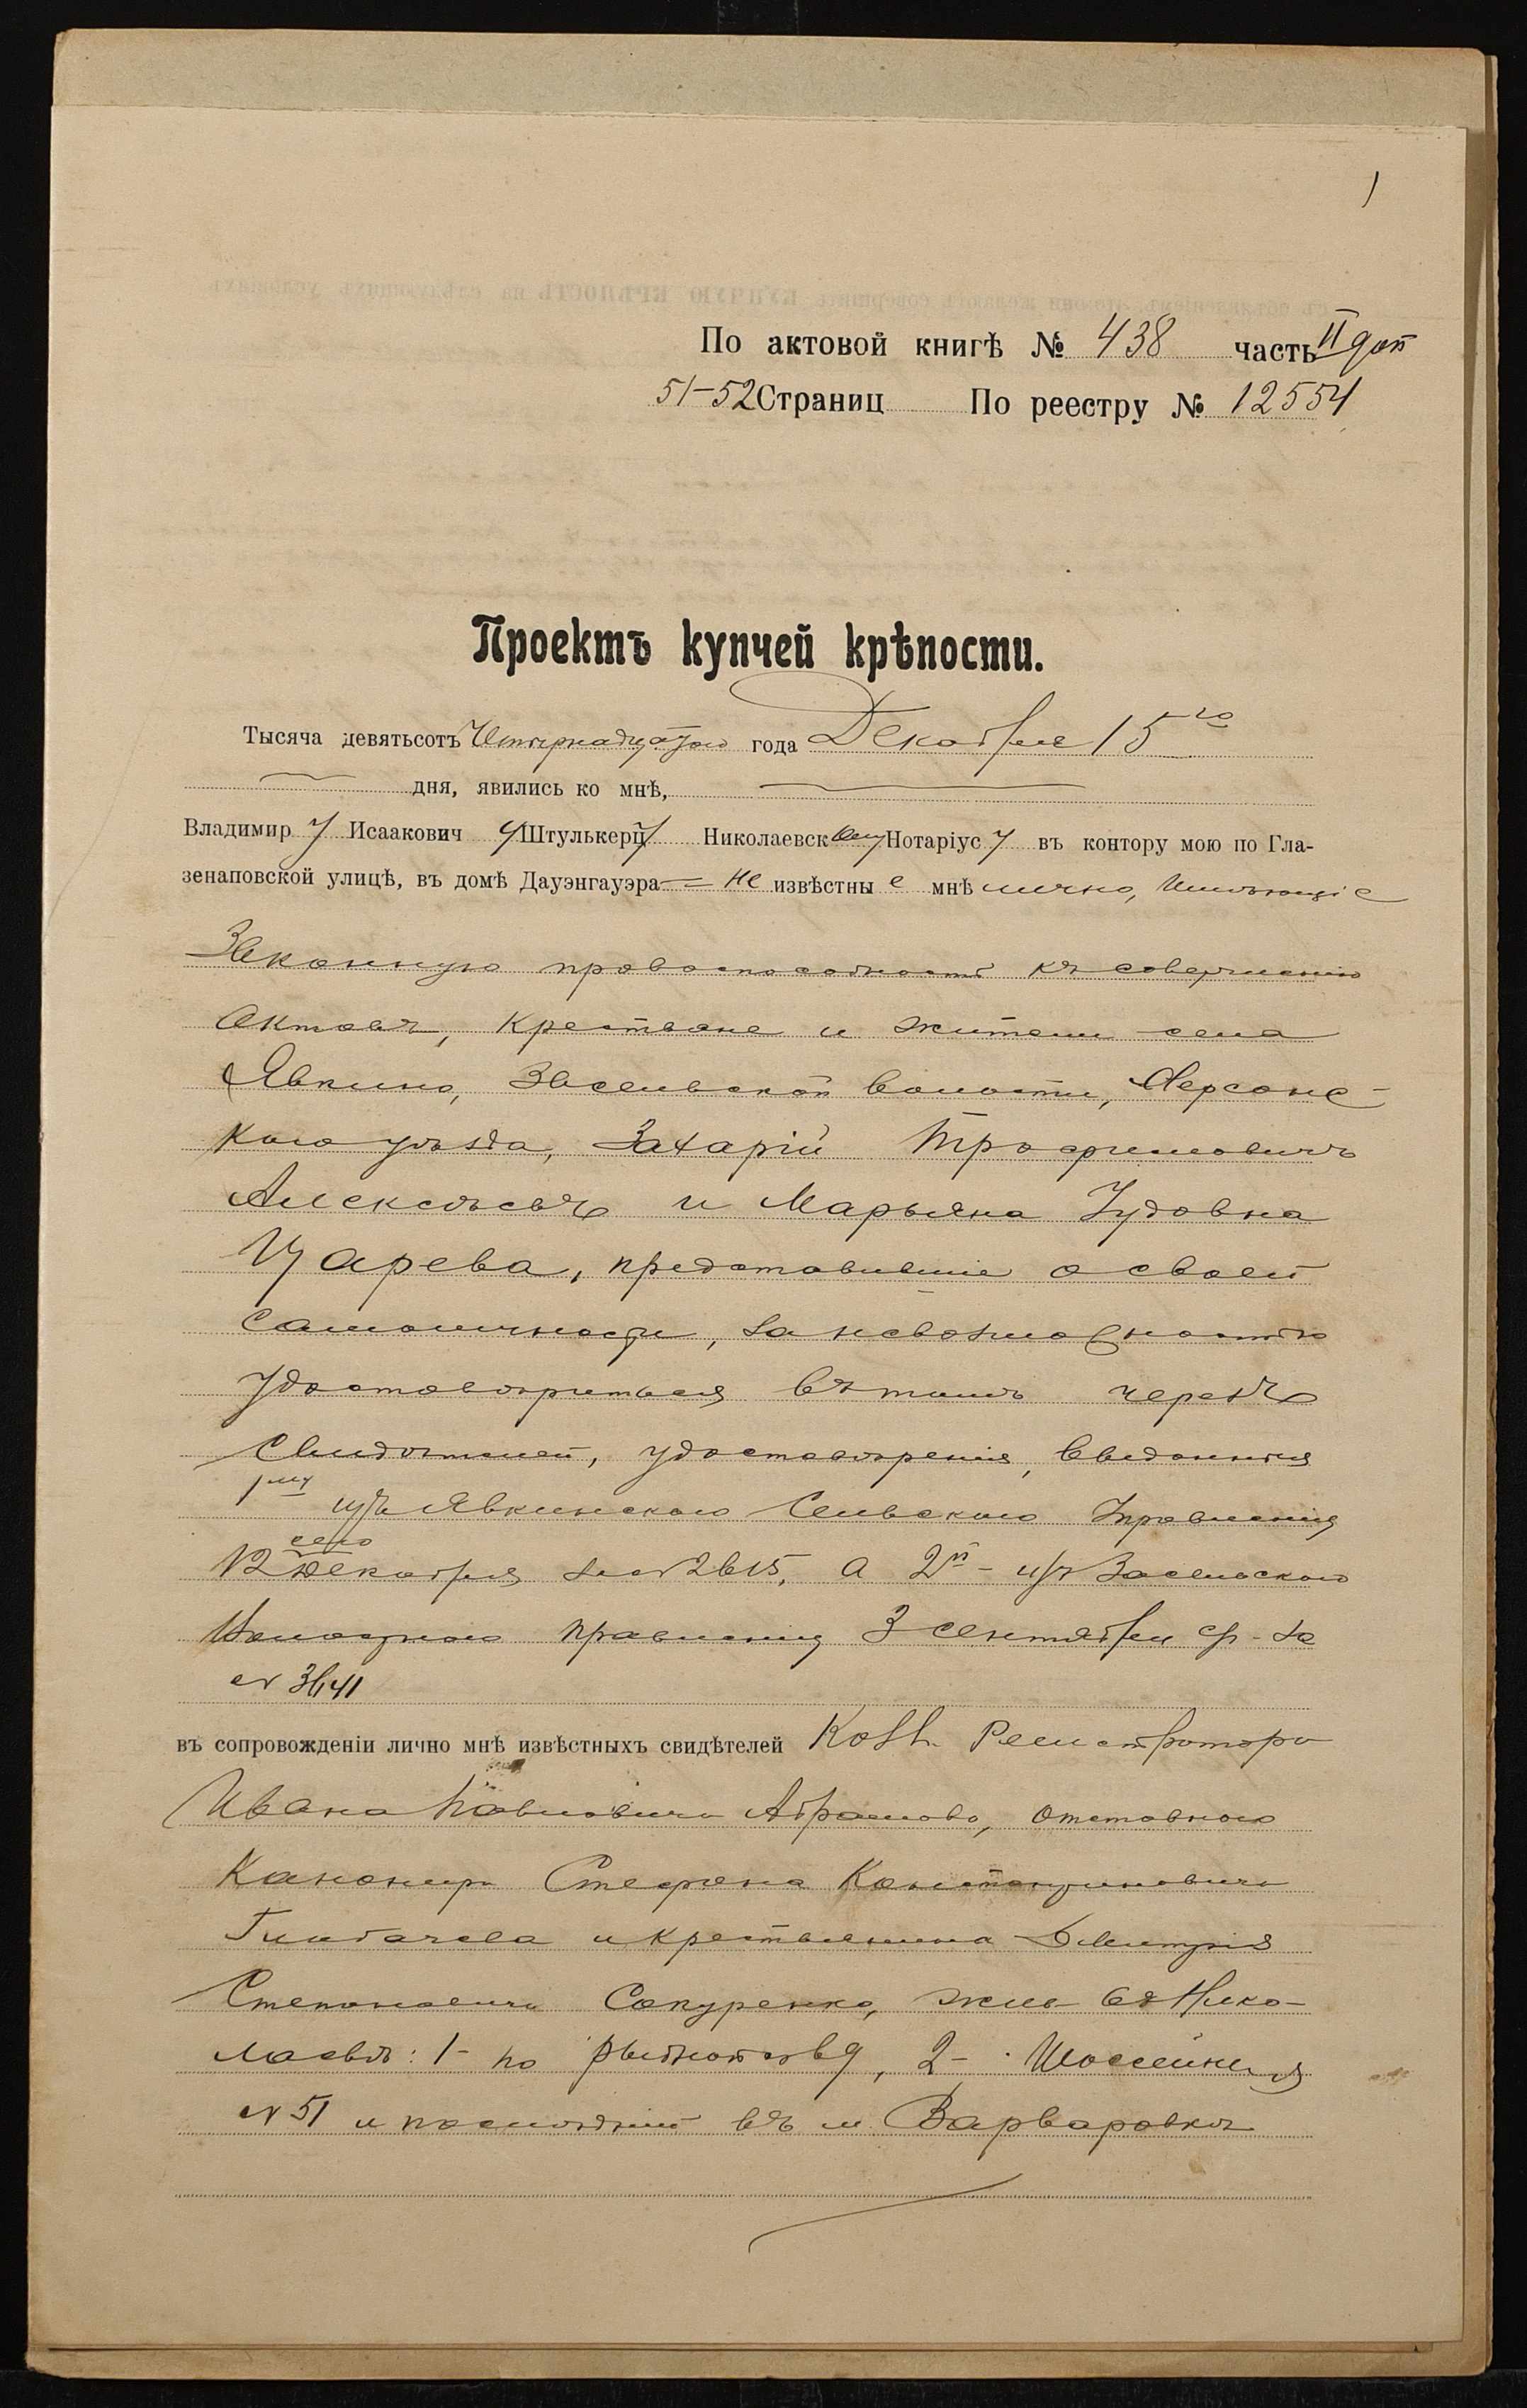 1
По актовой книгѣ № 438 часть II доп
51-52 Страниц По реестру № 12554
Проектъ купчей крѣпости.
Тысяча девятьсотъ Четырнадцатого года Декабря 15го
дня, явились ко мнѣ,
Владимир у Исаакович у Штулькерцу Николаевскому Нотаріусу въ контору мою по Гла-
зенаповской улицѣ, въ домѣ Дауэнгауэра — не извѣстны е мнѣ лично, имѣющіе
законную правоспособность къ совершенію
актовъ, крестьяне и жители села
Явкино, Засельской волости, Херсонс-
кого уѣзда, Захарій Трофимовичъ
Алексѣевъ и Марьяна Іудовна
Царева, представившіе о своей
самоличности, за невозможностью
удостовѣриться въ томъ черезъ
свидѣтелей, удостовѣренія, выданныя
1му изъ Явкинского Сельского Управленія
12 сего декабря за № 2615, а 2й - изъ Засельского
Волостного правленія 3 сентября с/г. за
№ 3641
въ сопровожденіи лично мнѣ извѣстныхъ свидѣтелей Колл. Регистратора
Ивана Павловича Абрамова, отставного
Канонира Стефана Константиновича
и крестьянина Дмитрія
Степановича Сокуренко, жив. въ Нико-
лаевѣ: 1- по 2- Шоссейная
№ 51 и послѣдній въ м. Варваровкѣ